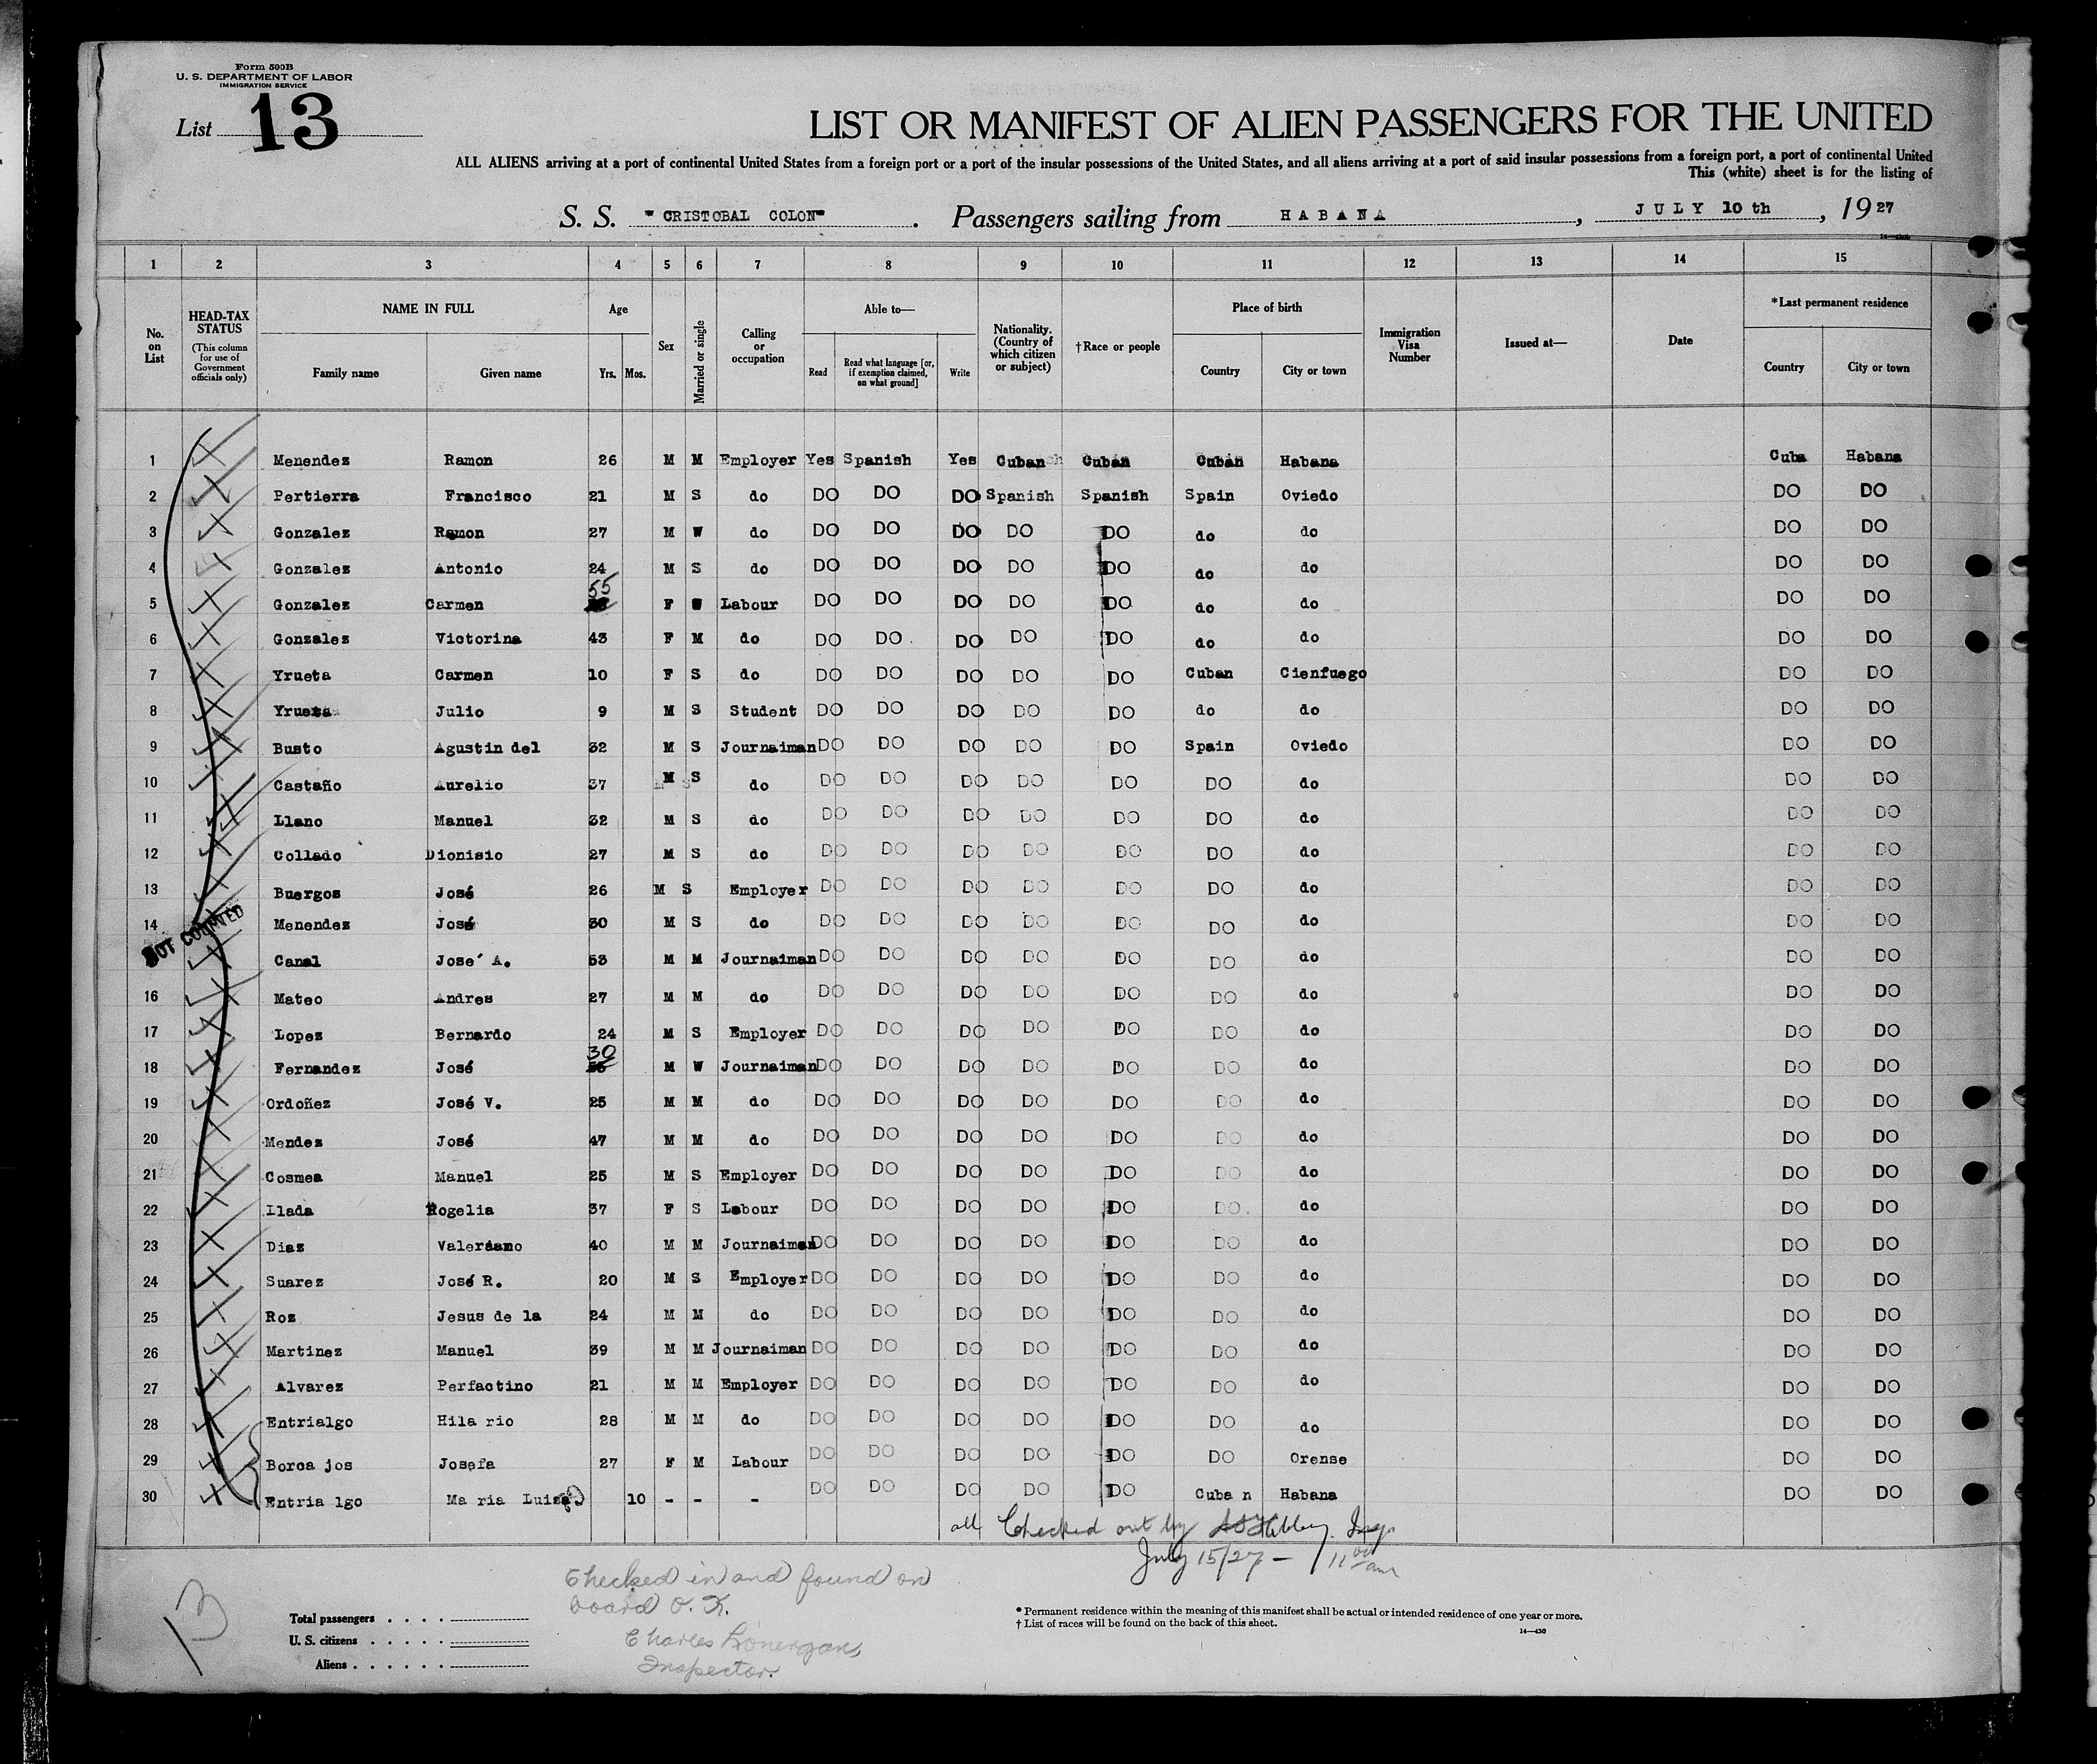 Form 500B
U. S. DEPARTMENT OF LABOR
IMMIGRATION SERVICE
List 13
LIST OR MANIFEST OF ALIEN PASSENGERS FOR THE UNITED
ALL ALIENS arriving at a port of continental United States from a foreign port or a port of the insular possessions of the United States, and all aliens arriving at a port of said insular possessions from a foreign port, a port of continental United
This (white) sheet is for the listing of
S. S. "CRISTOBAL COLON". Passengers sailing from HABANA, JULY 10 th, 1927
1 2 3 4 5 6 7 8 9 10 11 12 13 14 15
No. on List HEAD-TAX STATUS (This column for use of Government officials only) NAME IN FULL Family name Given name Age Yrs. Mos. Sex Married or single Calling or occupation Able to— Read Read what language [or, if exemption claimed, on what ground] Write Nationality. (Country of which citizen or subject) †Race or people Place of birth Country City or town Immigration Visa Number Issued at— Date *Last permanent residence Country City or town
1 Menendez Ramon 26 M M Employer Yes Spanish Yes Cuban Cuban Cuban Habana Cuba Habana
2 Pertierra Francisco 21 M S do DO DO DO Spanish Spanish Spain Oviedo DO DO
3 Gonzalez Ramon 27 M W do DO DO DO DO DO do do DO DO
4 Gonzalez Antonio 24 M S do DO DO DO DO DO do do DO DO
5 Gonzalez Carmen 55 F W Labour DO DO DO DO DO do do DO DO
6 Gonzalez Victorina 43 F M do DO DO DO DO DO do do DO DO
7 Yrueta Carmen 10 F S do DO DO DO DO DO Cuban Cienfuego DO DO
8 Yrueta Julio 9 M S Student DO DO DO DO DO do do DO DO
9 Busto Agustin del 32 M S Journaiman DO DO DO DO DO Spain Oviedo DO DO
10 Castaño Aurelio 37 M S do DO DO DO DO DO DO do DO DO
11 Llano Manuel 32 M S do DO DO DO DO DO DO do DO DO
12 Collado Dionisio 27 M S do DO DO DO DO DO DO do DO DO
13 Buergos José 26 M S Employer DO DO DO DO DO DO do DO DO
14 Menendez José 30 M S do DO DO DO DO DO DO do DO DO
NOT COUNTED
Canal Jose´ A. 53 M M Journaiman DO DO DO DO DO DO do DO DO
16 Mateo Andres 27 M M do DO DO DO DO DO DO do DO DO
17 Lopez Bernardo 24 M S Employer DO DO DO DO DO DO do DO DO
18 Fernandez José 30 M W Journaiman DO DO DO DO DO DO do DO DO
19 Ordoñez José V. 25 M M do DO DO DO DO DO DO do DO DO
20 Mendez José 47 M M do DO DO DO DO DO DO do DO DO
21 Cosmea Manuel 25 M S Employer DO DO DO DO DO DO do DO DO
22 Llada Rogelia 37 F S Labour DO DO DO DO DO DO do DO DO
23 Diaz Valeriano 40 M M Journaiman DO DO DO DO DO DO do DO DO
24 Suarez José R. 20 M S Employer DO DO DO DO DO DO do DO DO
25 Roz Jesus de la 24 M M do DO DO DO DO DO DO do DO DO
26 Martinez Manuel 39 M M Journaiman DO DO DO DO DO DO do DO DO
27 Alvarez Perfactino 21 M M Employer DO DO DO DO DO DO do DO DO
28 Entrialgo Hila rio 28 M M do DO DO DO DO DO DO do DO DO
29 Borca jos Josefa 27 F M Labour DO DO DO DO DO DO Orense DO DO
30 Entria lgo Ma ria Luisa 10 - - - DO DO DO DO DO Cuba n Habana DO DO
all Checked out by Insp.
July 15/27 — 11 00 am
Checked in and found on
board O. K.
Charles Lonergan,
Inspector.
13
Total passengers
U. S. citizens
Aliens
* Permanent residence within the meaning of this manifest shall be actual or intended residence of one year or more.
† List of races will be found on the back of this sheet.
14—430